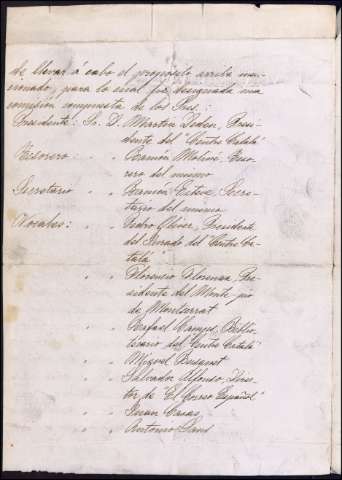 de llevar á cabo el propósito arriba men-
cionado, para lo cual fue designada una
comisión compuesta de los Sres.:
Presidente: Sr. D. Martín Dedeu, Presi-
dente del "Centro Català"
Tesorero: " " Ramón Moliné, Teso-
rero del mismo
Secretario " " Ramón Esteve, Secre-
tario del mismo
Vocales: " " Pedro Oliver, Presidente
del Jurado del "Centro Ca-
talà"
" " Florencio Florenza, Pre-
sidente del Monte pio
de Montserrat
" " Rafael Camps, Biblio-
tecario del "Centro Català"
" " Miguel
" " Salvador Alfonso, Direc-
tor de "El Correo Español"
" " Juan Casas
" " Antonio Sans